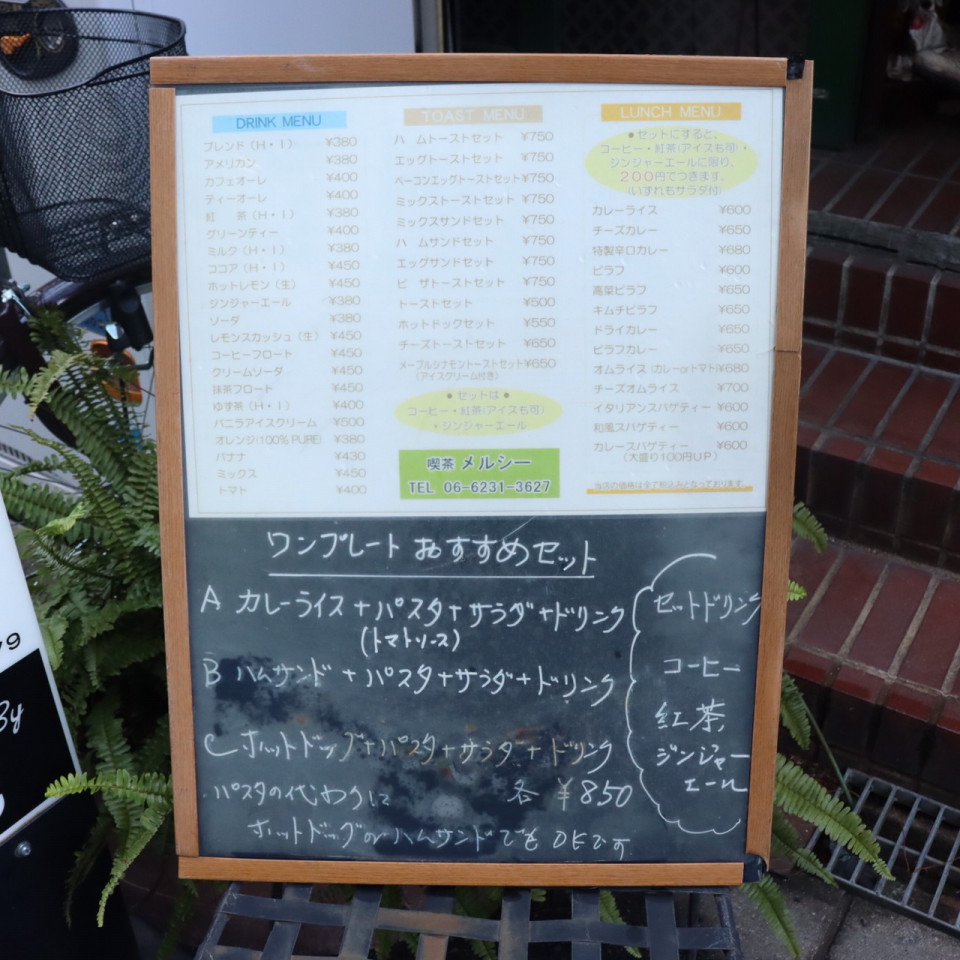 DRINK MENU
ブレンド（H・I） ¥380
アメリカン ¥380
カフェオーレ ¥400
ティーオーレ ¥400
紅　茶（H・I） ¥380
グリーンティー ¥400
ミルク（H・I） ¥380
ココア（H・I） ¥450
ホットレモン（生） ¥450
ジンジャーエール ¥380
ソーダ ¥380
レモンスカッシュ（生） ¥450
コーヒーフロート ¥450
クリームソーダ ¥450
抹茶フロート ¥450
ゆず茶（H・I） ¥400
バニラアイスクリーム ¥500
オレンジ(100% PURE) ¥380
バナナ ¥430
ミックス ¥450
トマト ¥400
TOAST MENU
ハ　ムトーストセット ¥750
エッグトーストセット ¥750
ベーコンエッグトーストセット ¥750
ミックストーストセット ¥750
ミックスサンドセット ¥750
ハ　ムサンドセット ¥750
エッグサンドセット ¥750
ピ　ザトーストセット ¥750
トーストセット ¥500
ホットドックセット ¥550
チーズトーストセット ¥650
メープルシナモントーストセット ¥650
（アイスクリーム付き）
● セットは ●
コーヒー・紅茶(アイスも可)
・ジンジャーエール
喫茶 メルシー
TEL 06-6231-3627
LUNCH MENU
● セットにすると、
コーヒー・紅茶(アイスも可)・
ジンジャーエールに限り、
200円でつきます。
(いずれもサラダ付)
カレーライス ¥600
チーズカレー ¥650
特製辛口カレー ¥680
ピラフ ¥600
高菜ピラフ ¥650
キムチピラフ ¥650
ドライカレー ¥650
ピラフカレー ¥650
オムライス (カレーorトマト) ¥680
チーズオムライス ¥700
イタリアンスパゲティー ¥600
和風スパゲティー ¥600
カレースパゲティー ¥600
（大盛り100円UP）
ワンプレート おすすめセット
A カレーライス+パスタ+サラダ+ドリンク
(トマトソース)
B ハムサンド+パスタ+サラダ+ドリンク
C ホットドッグ+パスタ+サラダ+ドリンク
各 ¥850
パスタの代わりに
ホットドッグかハムサンドでもOKです
セットドリンク
コーヒー
紅茶
ジンジャー
エール